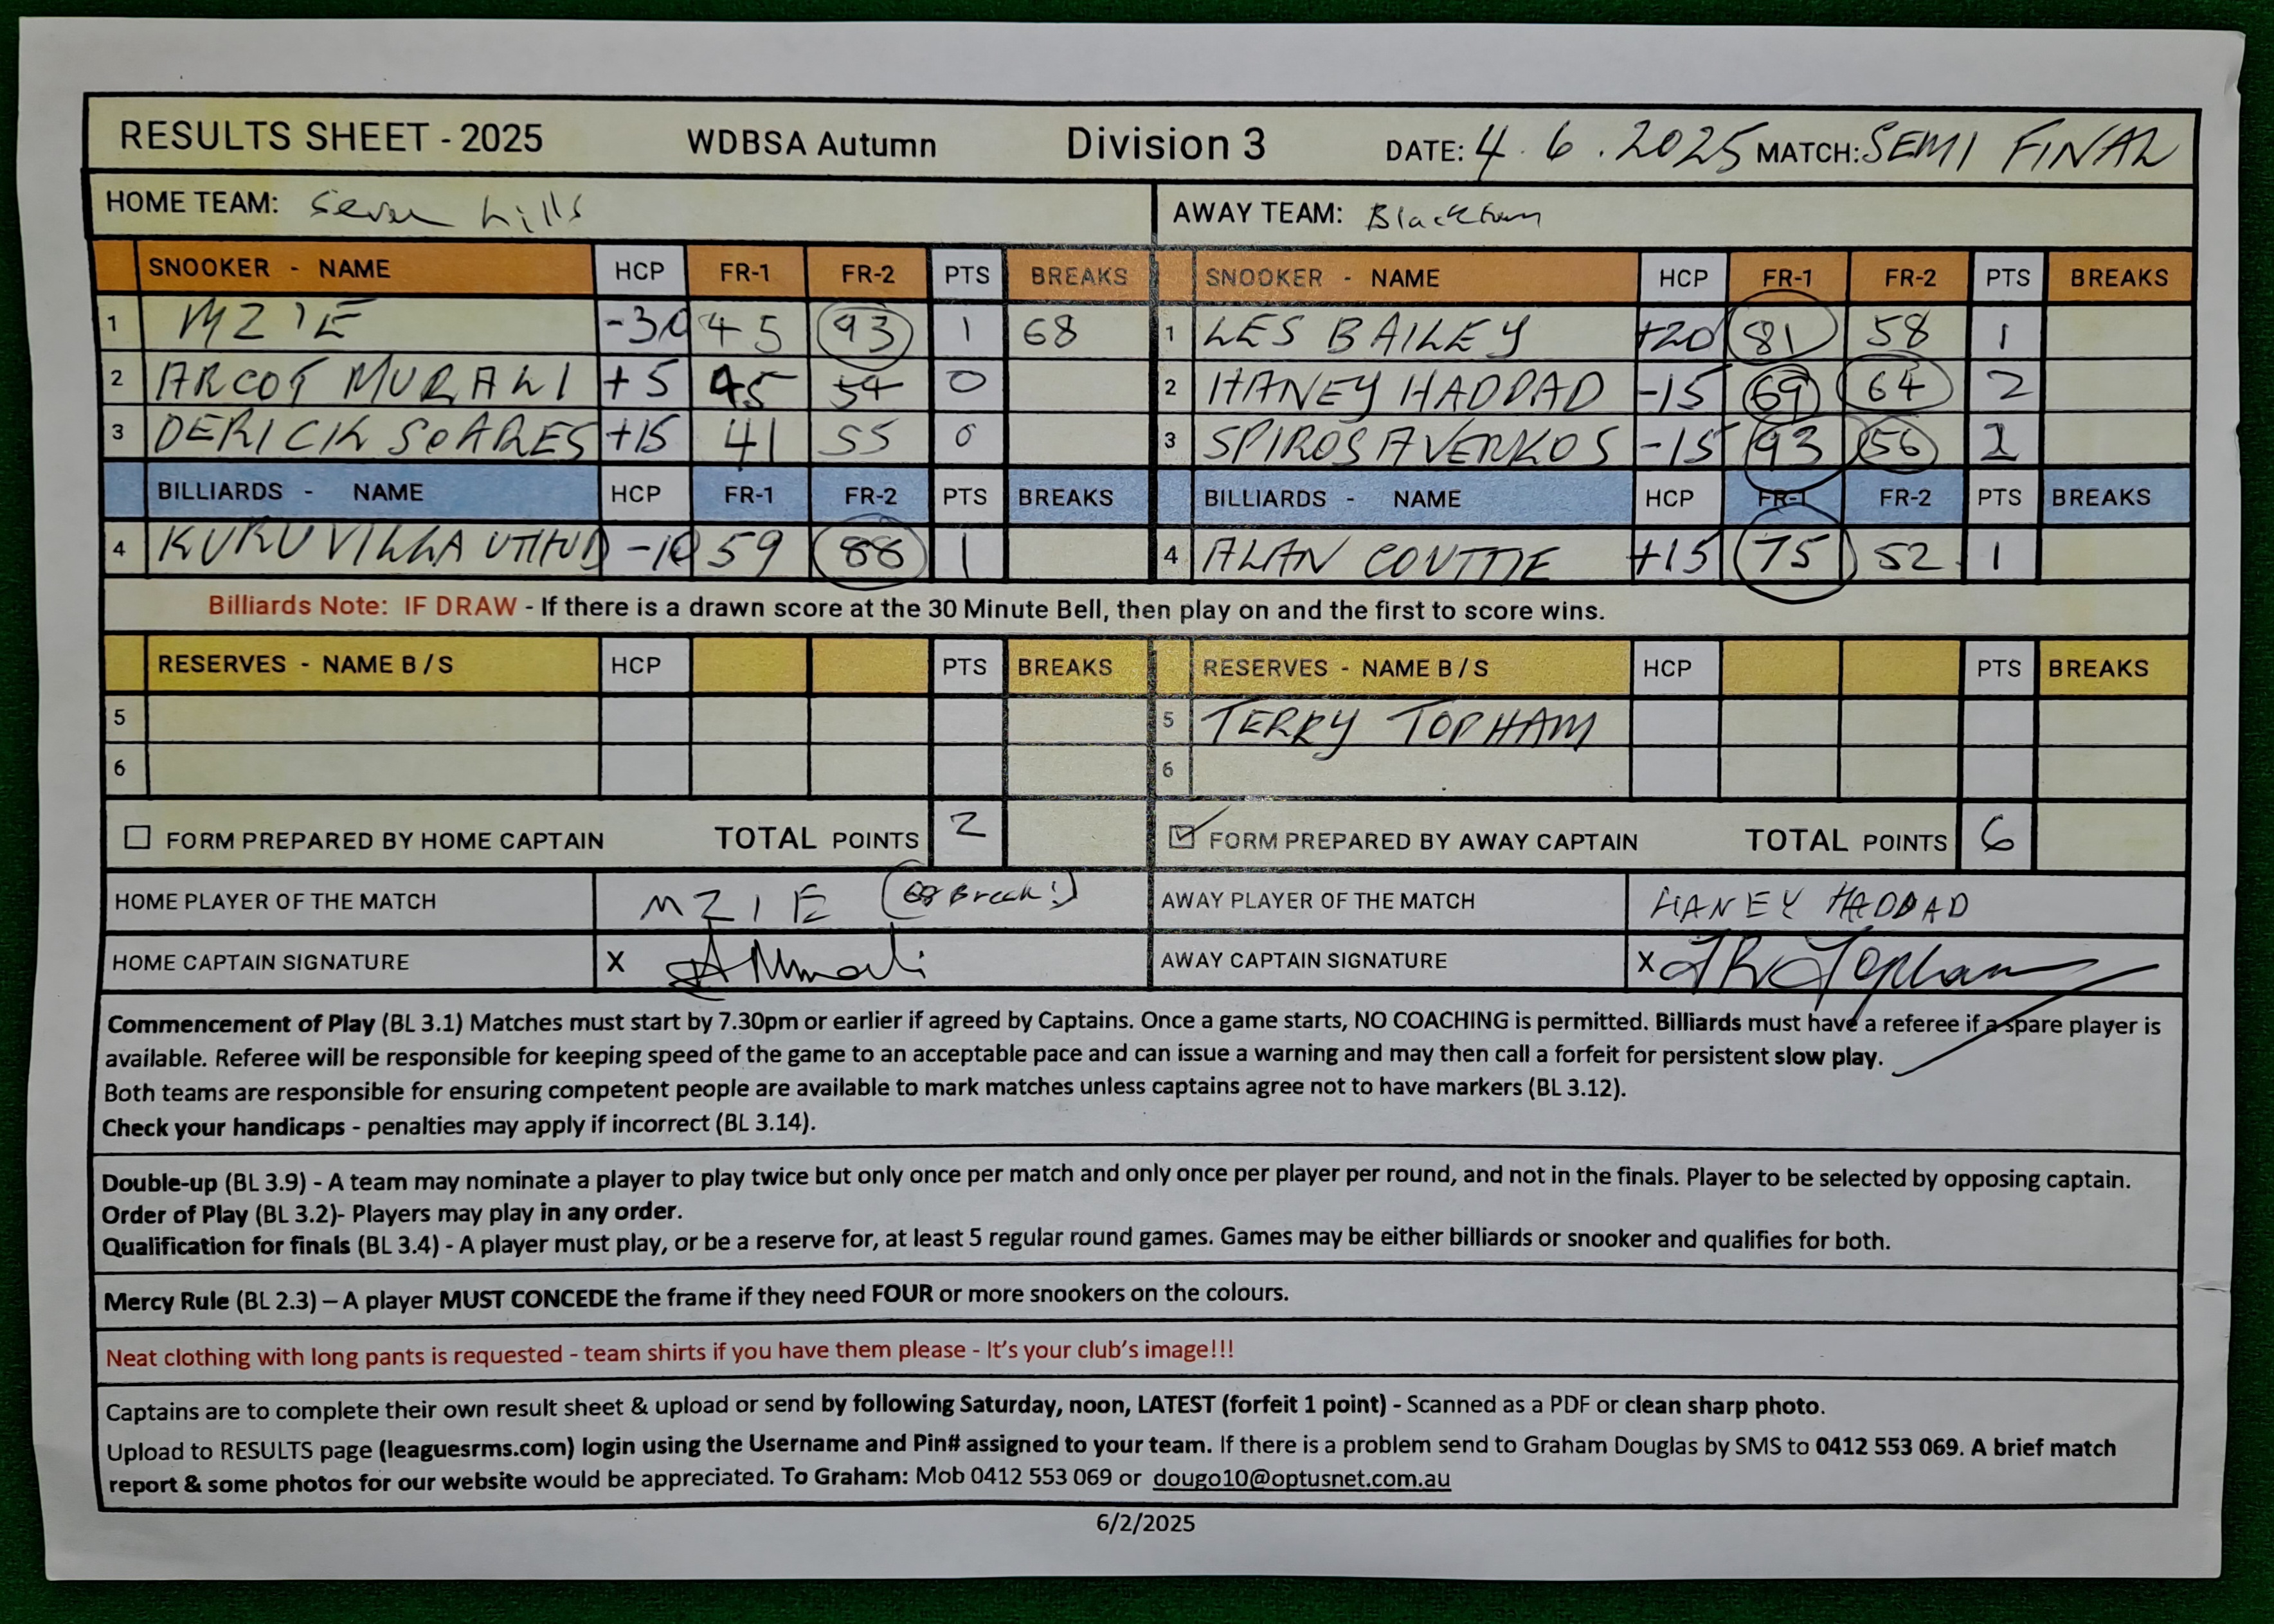 RESULTS SHEET - 2025 WDBSA Autumn Division 3 DATE: 4.6.2025 MATCH: SEMI FINAL
HOME TEAM: Seven hills AWAY TEAM: Blacktown
SNOOKER - NAME HCP FR-1 FR-2 PTS BREAKS SNOOKER - NAME HCP FR-1 FR-2 PTS BREAKS
1 MZIE -30 45 93 1 68 1 LES BAILEY +20 81 58 1
2 ARCOT MURALI +5 45 54 0 2 HANEY HADDAD -15 69 64 2
3 DERICK SOARES +15 41 55 0 3 SPIROS AVERKOS -15 93 56 2
BILLIARDS - NAME HCP FR-1 FR-2 PTS BREAKS BILLIARDS - NAME HCP FR-1 FR-2 PTS BREAKS
4 KURUVILLA -10 59 88 1 4 ALAN COUTTIE +15 75 52 1
Billiards Note: IF DRAW - If there is a drawn score at the 30 Minute Bell, then play on and the first to score wins.
RESERVES - NAME B / S HCP PTS BREAKS RESERVES - NAME B / S HCP PTS BREAKS
5 5 TERRY TOPHAM
6 6
FORM PREPARED BY HOME CAPTAIN TOTAL POINTS 2 FORM PREPARED BY AWAY CAPTAIN TOTAL POINTS 6
HOME PLAYER OF THE MATCH MZIE (68 Break!) AWAY PLAYER OF THE MATCH HANEY HADDAD
HOME CAPTAIN SIGNATURE X AMurali AWAY CAPTAIN SIGNATURE X TR Topham
Commencement of Play (BL 3.1) Matches must start by 7.30pm or earlier if agreed by Captains. Once a game starts, NO COACHING is permitted. Billiards must have a referee if a spare player is
available. Referee will be responsible for keeping speed of the game to an acceptable pace and can issue a warning and may then call a forfeit for persistent slow play.
Both teams are responsible for ensuring competent people are available to mark matches unless captains agree not to have markers (BL 3.12).
Check your handicaps - penalties may apply if incorrect (BL 3.14).
Double-up (BL 3.9) - A team may nominate a player to play twice but only once per match and only once per player per round, and not in the finals. Player to be selected by opposing captain.
Order of Play (BL 3.2)- Players may play in any order.
Qualification for finals (BL 3.4) - A player must play, or be a reserve for, at least 5 regular round games. Games may be either billiards or snooker and qualifies for both.
Mercy Rule (BL 2.3) – A player MUST CONCEDE the frame if they need FOUR or more snookers on the colours.
Neat clothing with long pants is requested - team shirts if you have them please - It's your club's image!!!
Captains are to complete their own result sheet & upload or send by following Saturday, noon, LATEST (forfeit 1 point) - Scanned as a PDF or clean sharp photo.
Upload to RESULTS page (leaguesrms.com) login using the Username and Pin# assigned to your team. If there is a problem send to Graham Douglas by SMS to 0412 553 069. A brief match
report & some photos for our website would be appreciated. To Graham: Mob 0412 553 069 or dougo10@optusnet.com.au
6/2/2025